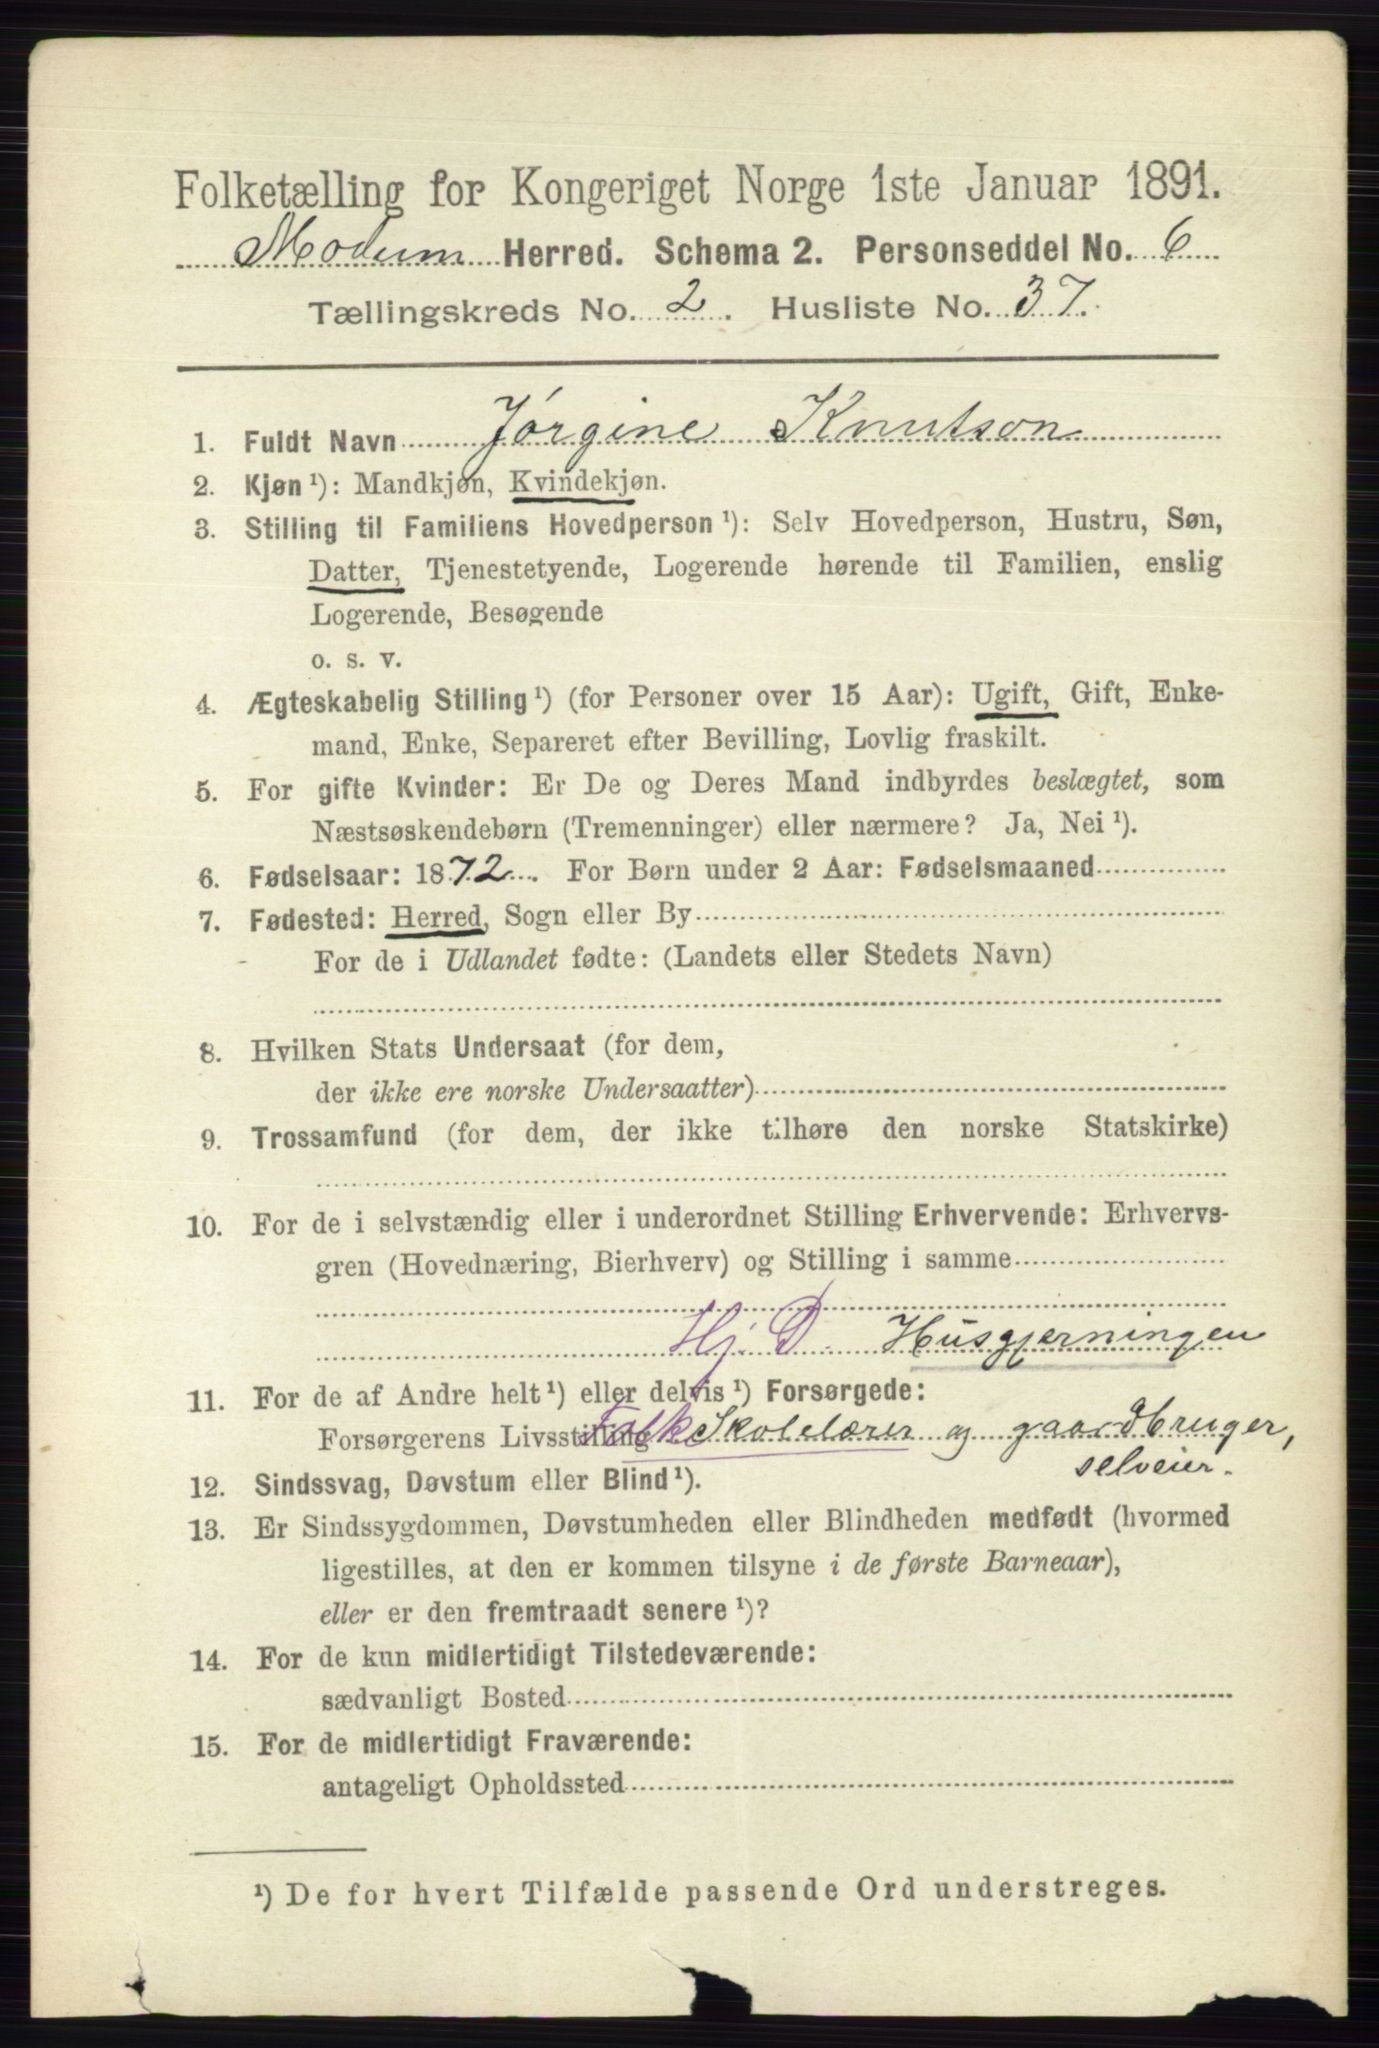 Folketælling for Kongeriget Norge 1ste Januar 1891.
Modum Herred. Schema 2. Personseddel No. 6
Tællingskreds No. 2. Husliste No. 37.
1. Fuldt Navn Jørgine Knutson
2. Kjøn ¹): Mandkjøn, Kvindekjøn.
3. Stilling til Familiens Hovedperson ¹): Selv Hovedperson, Hustru, Søn,
Datter, Tjenestetyende, Logerende hørende til Familien, enslig
Logerende, Besøgende
o. s. v.
4. Ægteskabelig Stilling ¹) (for Personer over 15 Aar): Ugift, Gift, Enke-
mand, Enke, Separeret efter Bevilling, Lovlig fraskilt.
5. For gifte Kvinder: Er De og Deres Mand indbyrdes beslægtet, som
Næstsøskendebørn (Tremenninger) eller nærmere? Ja, Nei ¹).
6. Fødselsaar: 1872. For Børn under 2 Aar: Fødselsmaaned
7. Fødested: Herred, Sogn eller By
For de i Udlandet fødte: (Landets eller Stedets Navn)
8. Hvilken Stats Undersaat (for dem,
der ikke ere norske Undersaatter)
9. Trossamfund (for dem, der ikke tilhøre den norske Statskirke)
10. For de i selvstændig eller i underordnet Stilling Erhvervende: Erhvervs-
gren (Hovednæring, Bierhverv) og Stilling i samme
Hj. D. Husgjerningen
11. For de af Andre helt ¹) eller delvis ¹) Forsørgede:
Forsørgerens Livsstilling Folke Skolelærer og gaardbruger,
selveier.
12. Sindssvag, Døvstum eller Blind ¹).
13. Er Sindssygdommen, Døvstumheden eller Blindheden medfødt (hvormed
ligestilles, at den er kommen tilsyne i de første Barneaar),
eller er den fremtraadt senere ¹)?
14. For de kun midlertidigt Tilstedeværende:
sædvanligt Bosted
15. For de midlertidigt Fraværende:
antageligt Opholdssted
¹) De for hvert Tilfælde passende Ord understreges.